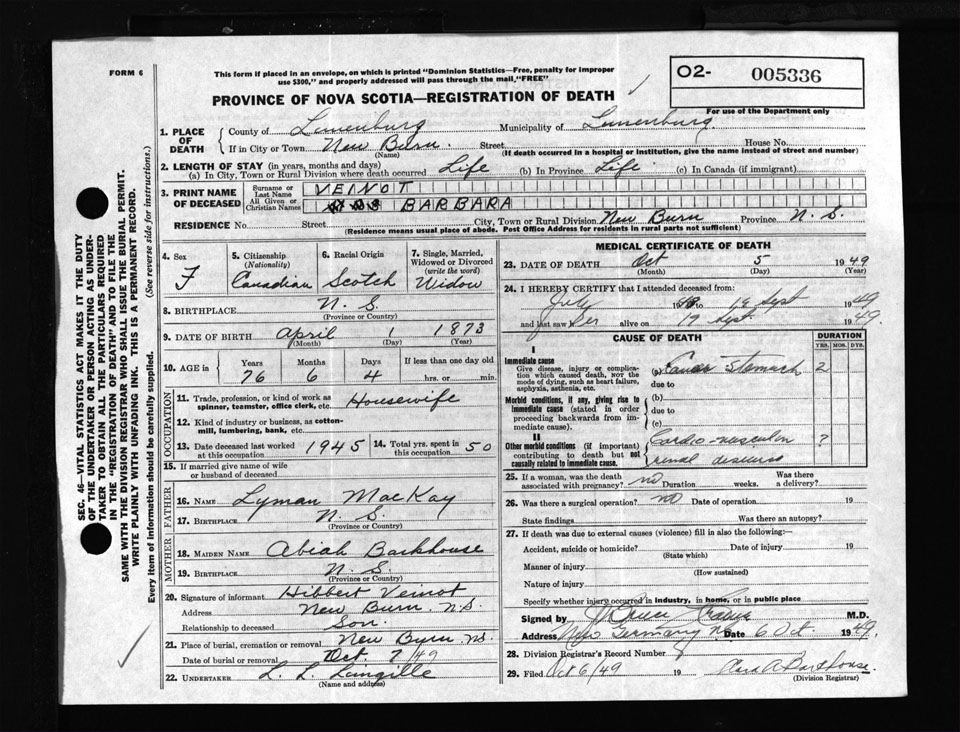 FORM 6
This form if placed in an envelope, on which is printed "Dominion Statistics—Free, penalty for improper
use $300," and properly addressed will pass through the mail, "FREE"
PROVINCE OF NOVA SCOTIA—REGISTRATION OF DEATH
O2- 005336
For use of the Department only
1. PLACE OF DEATH
County of Lunenburg Municipality of Lunenburg
If in City or Town New Burn Street House No.
(Name) (If death occurred in a hospital or institution, give the name instead of street and number)
2. LENGTH OF STAY (in years, months and days)
(a) In City, Town or Rural Division where death occurred Life (b) In Province Life (c) In Canada (if immigrant)
3. PRINT NAME OF DECEASED
Surname or Last Name VEINOT
All Given or Christian Names BARBARA
RESIDENCE No. Street City, Town or Rural Division New Burn Province N. S.
(Residence means usual place of abode. Post Office Address for residents in rural parts not sufficient)
4. Sex F
5. Citizenship (Nationality) Canadian
6. Racial Origin Scotch
7. Single, Married, Widowed or Divorced (write the word) Widow
8. BIRTHPLACE N. S.
(Province or Country)
9. DATE OF BIRTH April 1 1873
(Month) (Day) (Year)
10. AGE in Years Months Days If less than one day old
76 6 4 hrs. or min.
OCCUPATION
11. Trade, profession or kind of work as
spinner, teamster, office clerk, etc. Housewife
12. Kind of industry or business, as cotton-
mill, lumbering, bank, etc.
13. Date deceased last worked at this occupation 1945
14. Total yrs. spent in this occupation 50
15. If married give name of wife
or husband of deceased
FATHER
16. NAME Lyman MacKay
17. BIRTHPLACE N. S.
(Province or Country)
MOTHER
18. MAIDEN NAME Abiah Barkhouse
19. BIRTHPLACE N. S.
(Province or Country)
20. Signature of informant Hibbert Veinot
Address New Burn. N.S.
Relationship to deceased Son.
21. Place of burial, cremation or removal New Burn NS.
Date of burial or removal Oct. 7/49
22. UNDERTAKER L. L. Langille
(Name and address)
MEDICAL CERTIFICATE OF DEATH
23. DATE OF DEATH Oct 5 1949
(Month) (Day) (Year)
24. I HEREBY CERTIFY that I attended deceased from:
July 19 to 19 Sept 1949
and last saw her alive on 19 Sept 1949.
CAUSE OF DEATH
DURATION
YRS. MOS. DYS.
I
Immediate cause
Give disease, injury or complica-
tion which caused death, NOT the
mode of dying, such as heart failure,
asphyxia, asthenia, etc.
(a) Cancer Stomach 2
due to
Morbid conditions, if any, giving rise to
immediate cause (stated in order
proceeding backwards from im-
mediate cause).
(b)
due to
(c)
II
Other morbid conditions (if important)
contributing to death but not
causally related to immediate cause.
Cardio-vascular ?
renal disease
25. If a woman, was the death
associated with pregnancy? no Duration weeks. Was there a delivery?
26. Was there a surgical operation? no Date of operation 19
State findings Was there an autopsy?
27. If death was due to external causes (violence) fill in also the following:—
Accident, suicide or homicide? Date of injury 19
(State which)
Manner of injury
(How sustained)
Nature of injury
Specify whether injury occurred in industry, in home, or in public place
Signed by M.D.
Address New Germany N.S. Date 6 Oct. 1949.
28. Division Registrar's Record Number
29. Filed Oct 6/49 19 A Barkhouse.
(Division Registrar)
SEC. 46—VITAL STATISTICS ACT MAKES IT THE DUTY
OF THE UNDERTAKER OR PERSON ACTING AS UNDER-
TAKER TO OBTAIN ALL THE PARTICULARS REQUIRED
IN THE "REGISTRATION OF DEATH" AND TO FILE THE
SAME WITH THE DIVISION REGISTRAR WHO SHALL ISSUE THE BURIAL PERMIT.
WRITE PLAINLY WITH UNFADING INK. THIS IS A PERMANENT RECORD.
Every item of information should be carefully supplied. (See reverse side for instructions.)